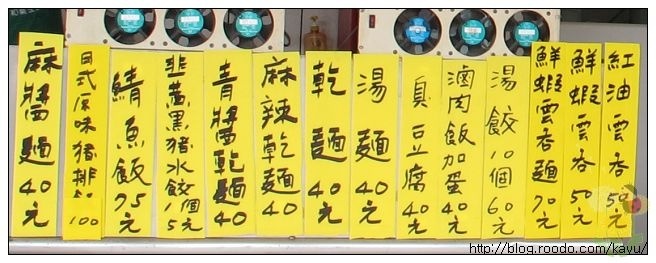 麻醬麵40元
日式原味豬排 100
鯖魚飯75元
韭黃黑豬水餃1個5元
青醬乾麵40
麻辣乾麵40
乾麵40元
湯麵40元
臭豆腐40元
滷肉飯加蛋40元
湯餃10個60元
鮮蝦雲吞麵70元
鮮蝦雲吞50元
紅油雲吞50元
http://blog.roodo.com/kayu/